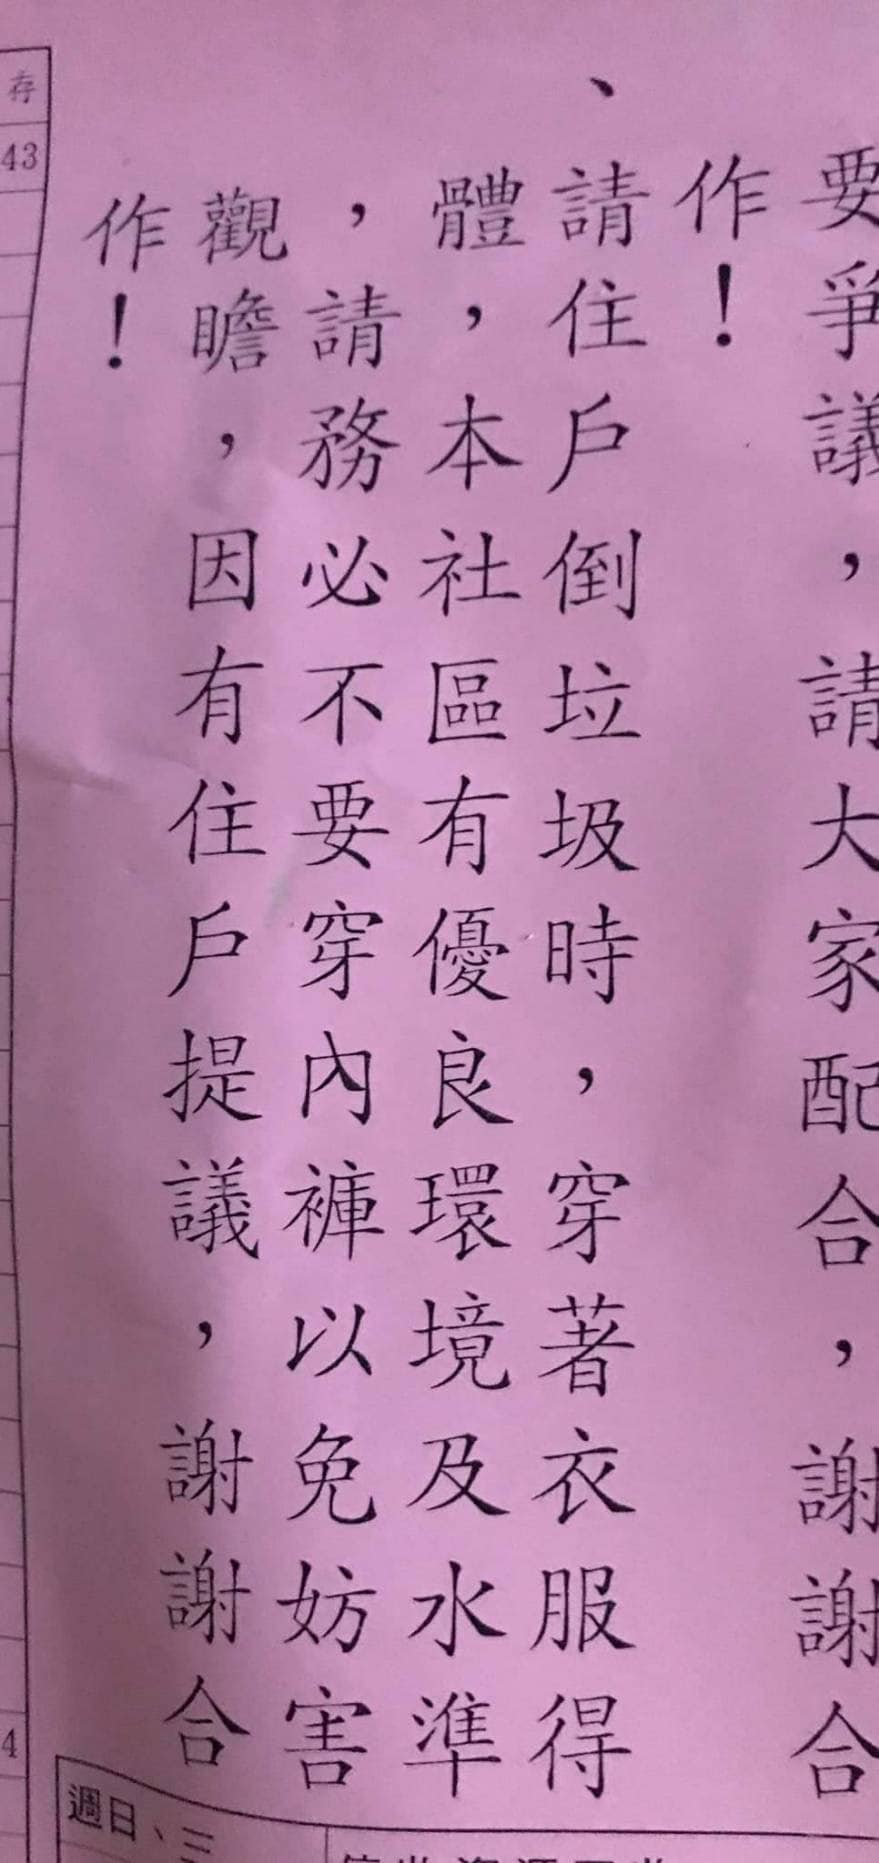 要爭議，請大家配合，謝謝合
作！
、請住戶倒垃圾時，穿著衣服得
體，本社區有優良環境及水準
，請務必不要穿內褲以免妨害
觀瞻，因有住戶提議，謝謝合
作！
存
43
4
週日、三